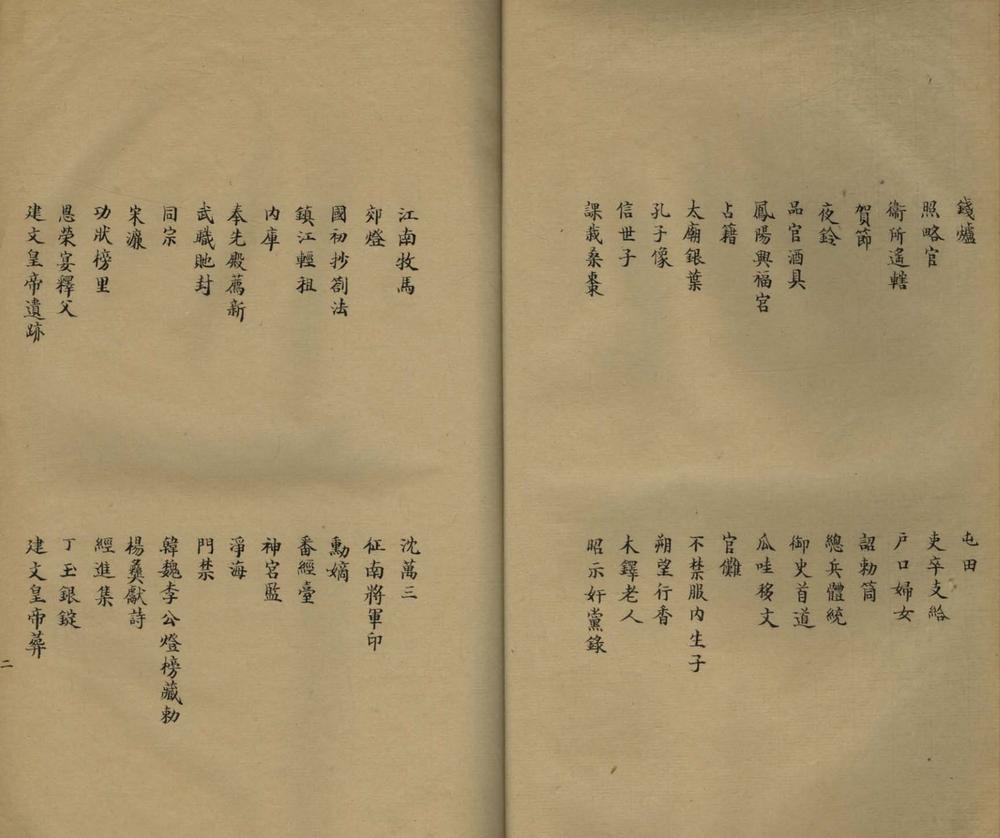 錢爐
屯田
照略官
吏卒支給
衞所遙轄
戶口婦女
賀節
詔勅筒
夜鈴
總兵體統
品官酒具
御史首道
鳳陽興福宮
瓜哇移文
占籍
官儺
太廟銀葉
不禁服內生子
孔子像
朔望行香
信世子
木鐸老人
課栽桑棗
昭示奸黨錄
江南牧馬
沈萬三
郊燈
征南將軍印
國初抄劄法
勳嫡
鎮江輕租
番經臺
內庫
神宮監
奉先殿薦新
淨海
武職貤封
門禁
同宗
韓魏李公燈榜藏勅
宋濂
楊彝獻詩
功狀榜里
經進集
恩榮宴釋父
丁玉銀錠
建文皇帝遺跡
建文皇帝葬
二